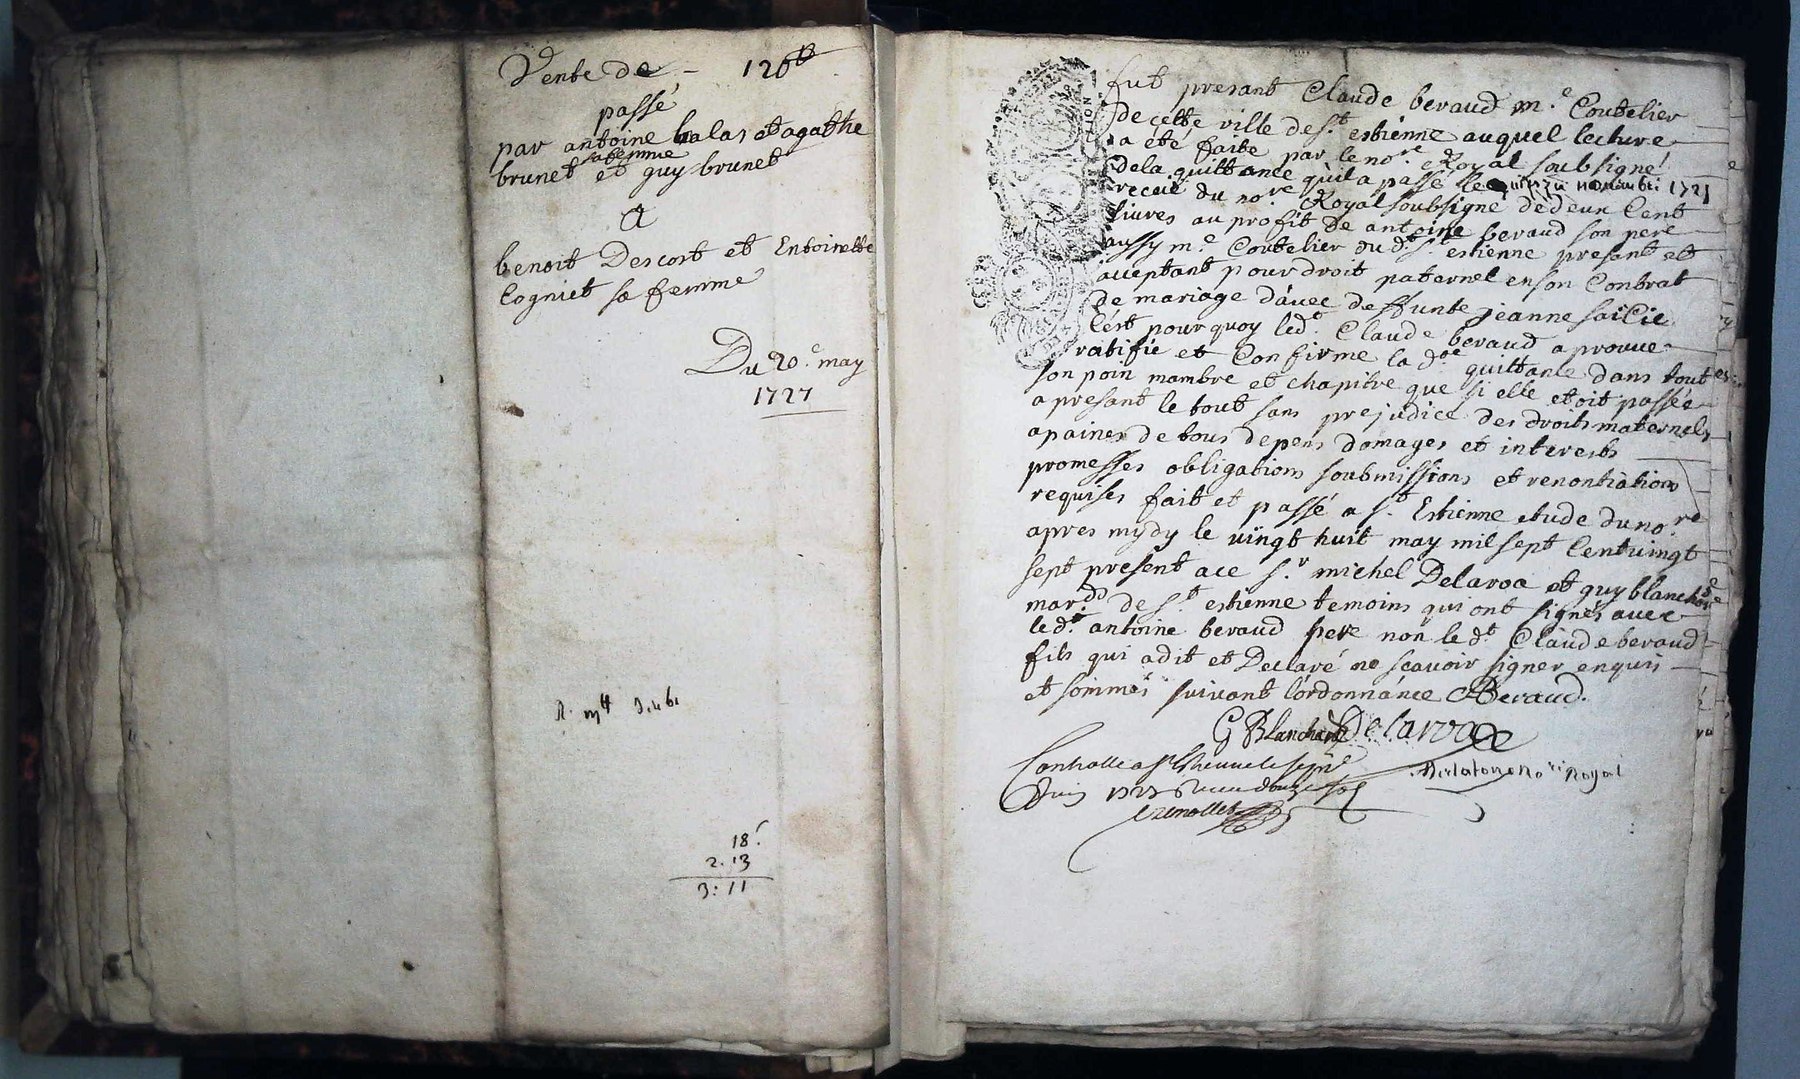 Vente de - 126ᵗᵗ
passé
par antoine balas et agathe
brunet sa femme et guy brunet
A
benoit Descost et Entoinette
Cogniet sa femme
Du 20.e may
1727
18.
2. 13
3: 11
fut presant Claude beraud m.e Coutelier
de cette ville de s.t estienne auquel lecture
a été faite par le no.re Royal soubsigné
de la quittance quil a passé le novembre 1721
receüe du no.re Royal soubsigné de deux Cent
livres au profit de antoine beraud son pere
aussy m.e Coutelier du d.t s.t estienne presant et
aceptant pour droit paternel en son Contrat
de mariage d'avec deffunte jeanne
C'est pourquoy led.t Claude beraud aprouve
ratifie et Confirme la d.te quittance dans tout
son poin mambre et chapitre que si elle etoit passée
a presant le tout sans prejudice des droits maternels
a paines de tous depens domages et interests
promesses obligations soubmissions et renontiations
requises fait et passé a s.t Estienne etude du no.re
apres mydy le vingt huit may mil sept Cent vingt
sept present a ce s.r michel Delaroa et guy blanchard
mar.ds de s.t estienne temoins qui ont signés avec
le d.t antoine beraud pere non le d.t Claude beraud
fils qui a dit et Declaré ne scavoir signer enquis
et sommés suivant l'ordonnance ABeraud.
G Blanchard Delaroa
Controlle a st Estienne le sept
Juin 1727 Receu douze sol
Delatore no.re Royal